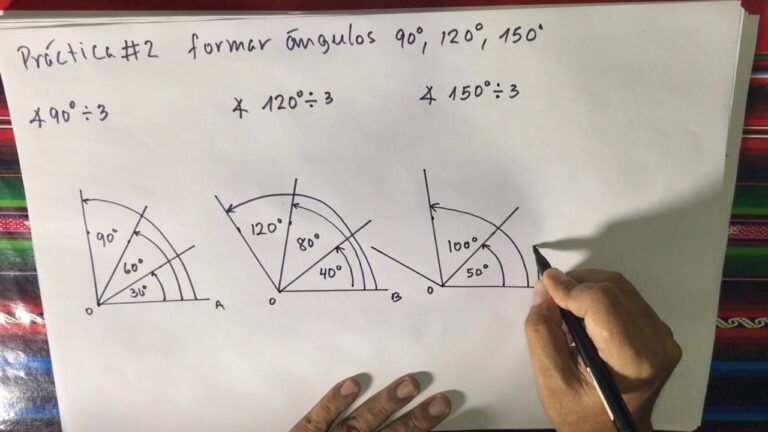 Práctica #2 formar ángulos 90°, 120°, 150°
∡ 90° ÷ 3
∡ 120° ÷ 3
∡ 150° ÷ 3
90°
60°
30°
O
A
120°
80°
40°
O
B
100°
50°
O